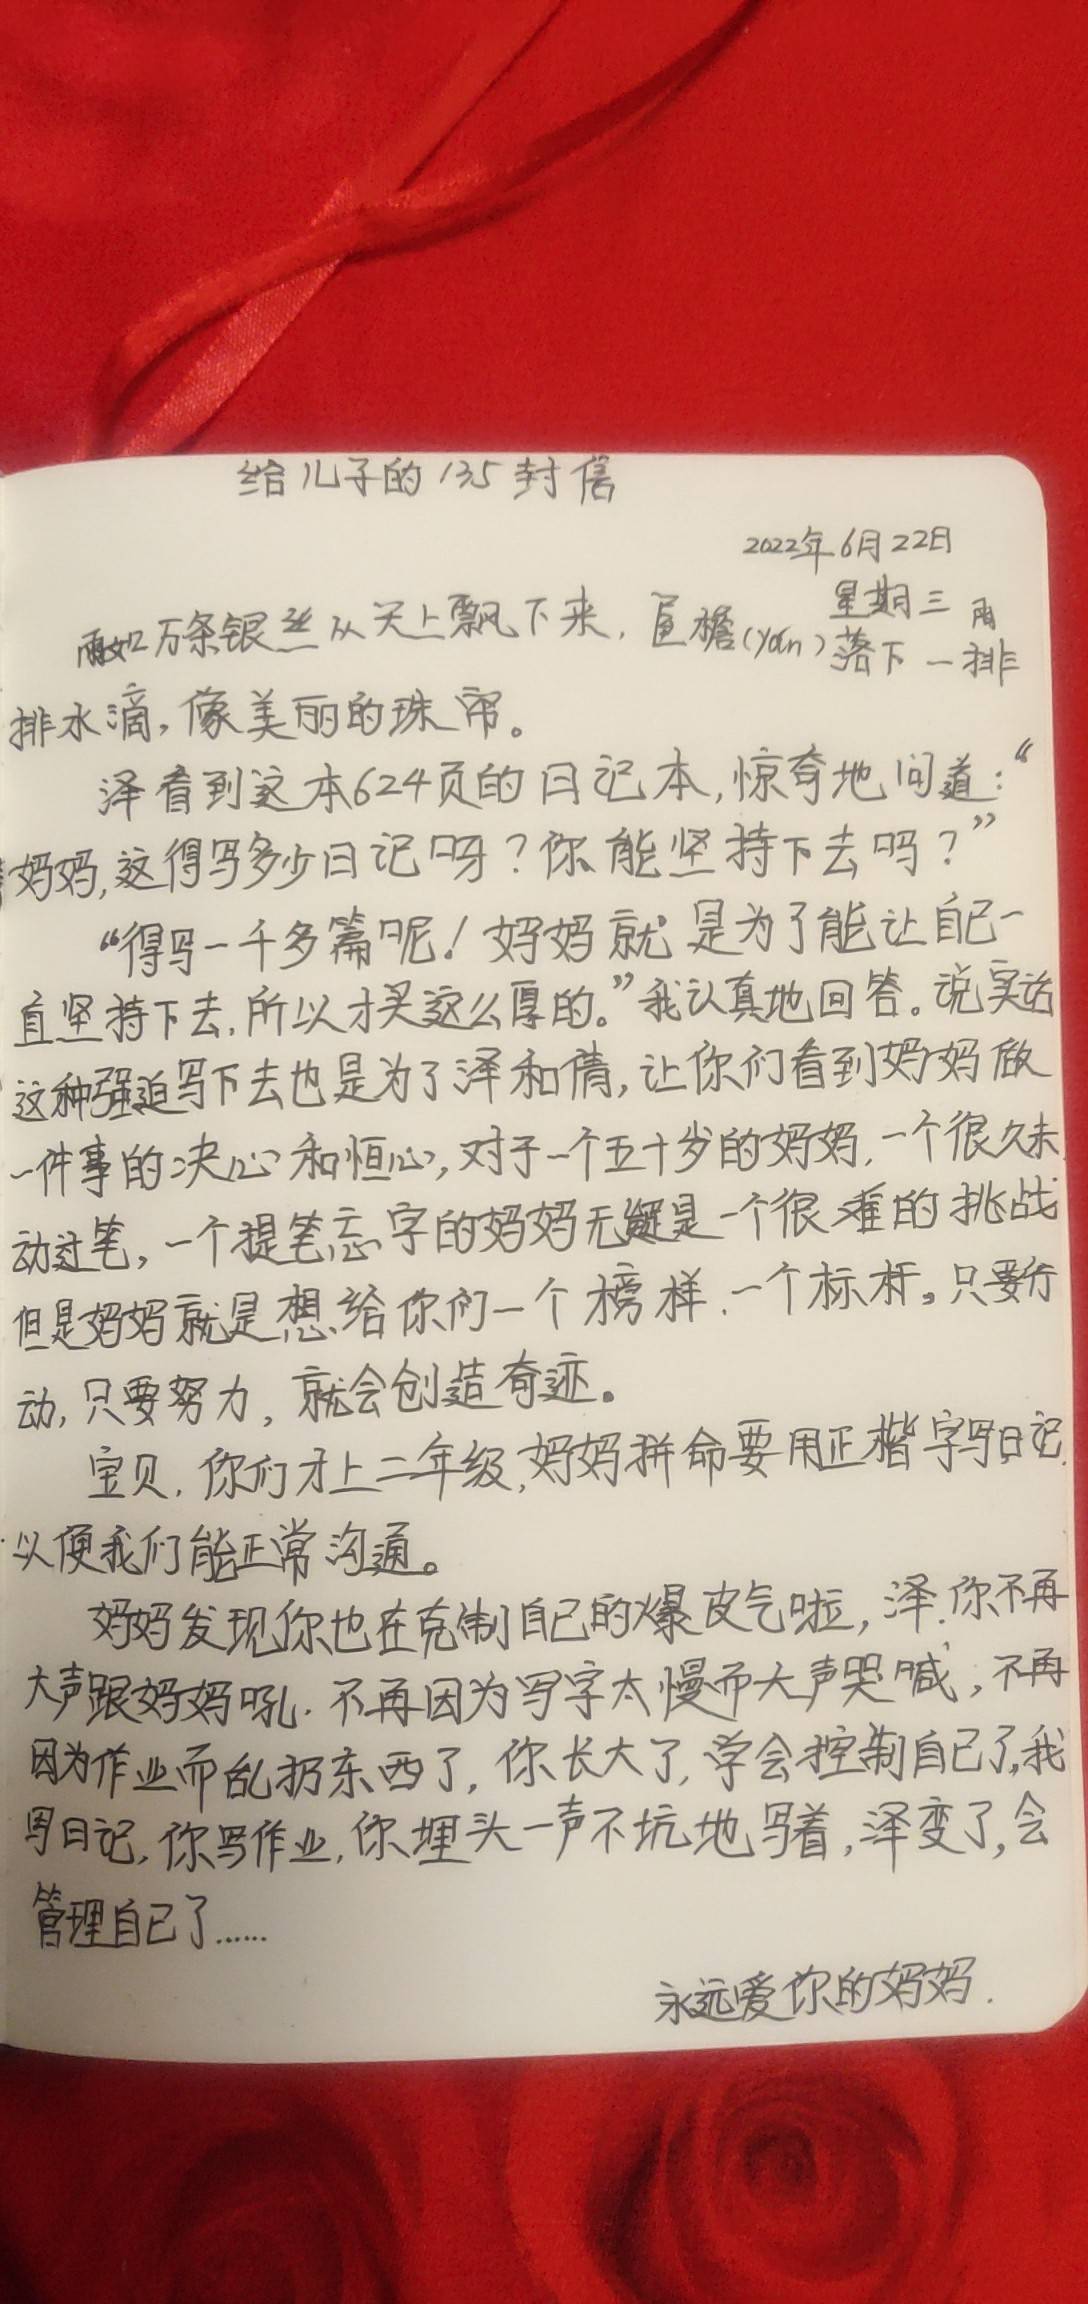 给儿子的135封信
2022年6月22日
星期三 雨
雨如万条银丝从天上飘下来,屋檐(yán)落下一排
排水滴,像美丽的珠帘。
泽看到这本624页的日记本,惊奇地问道:“
妈妈,这得写多少日记呀?你能坚持下去吗?”
“得写一千多篇呢!妈妈就是为了能让自己一
直坚持下去,所以才买这么厚的。”我认真地回答。说实话
这种强迫写下去也是为了泽和倩,让你们看到妈妈做
一件事的决心和恒心,对于一个五十岁的妈妈,一个很久未
动过笔,一个提笔忘字的妈妈无疑是一个很难的挑战
但是妈妈就是想给你们一个榜样.一个标杆。只要行
动,只要努力,就会创造奇迹。
宝贝,你们才上二年级,妈妈拼命要用正楷字写日记,
以便我们能正常沟通。
妈妈发现你也在克制自己的爆皮气啦,泽.你不再
大声跟妈妈吼.不再因为写字太慢而大声哭喊,不再
因为作业而乱扔东西了,你长大了,学会控制自己了,我
写日记,你写作业,你埋头一声不坑地写着,泽变了,会
管理自己了……
永远爱你的妈妈.